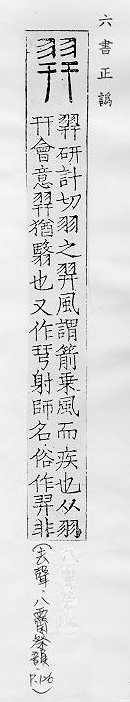 六書正譌
羿研計切羽之羿風謂箭乗風而疾也从羽
幵會意羿猶也又作射師名俗作羿非
(去聲·八霽祭韻·P.126)